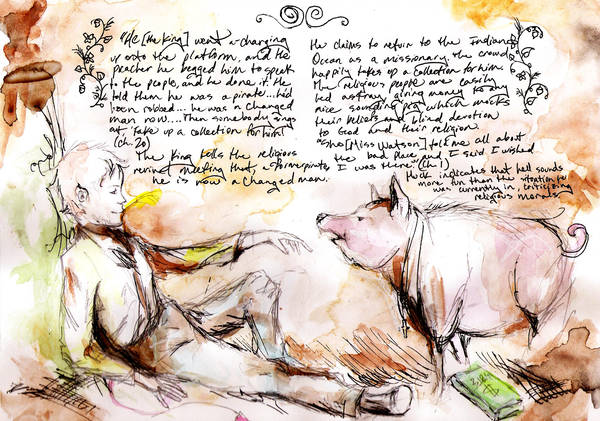 "He [the King] went a-charging
up onto the platform, and the
preacher he begged him to speak
to the people, and he done it. He
told them he was a pirate...he'd
been robbed... he was a changed
man now.... Then somebody sings
out 'take up a collection for him!'
(Ch. 20)
The King tells the religious
revival meeting that, a former pirate,
he is now a changed man.
He claims to return to the Indian
Ocean as a missionary. The crowd
happily takes up a collection for him.
The religious people are easily
led astray, giving money to any
nice sounding pig which mocks
their beliefs and blind devotion
to God and their religion.
"She [Miss Watson] told me all about
the bad place and I said I wished
I was there" (Ch. 1)
Huck indicates that hell sounds
more fun than the situation he
was currently in, criticizing
religious morals.